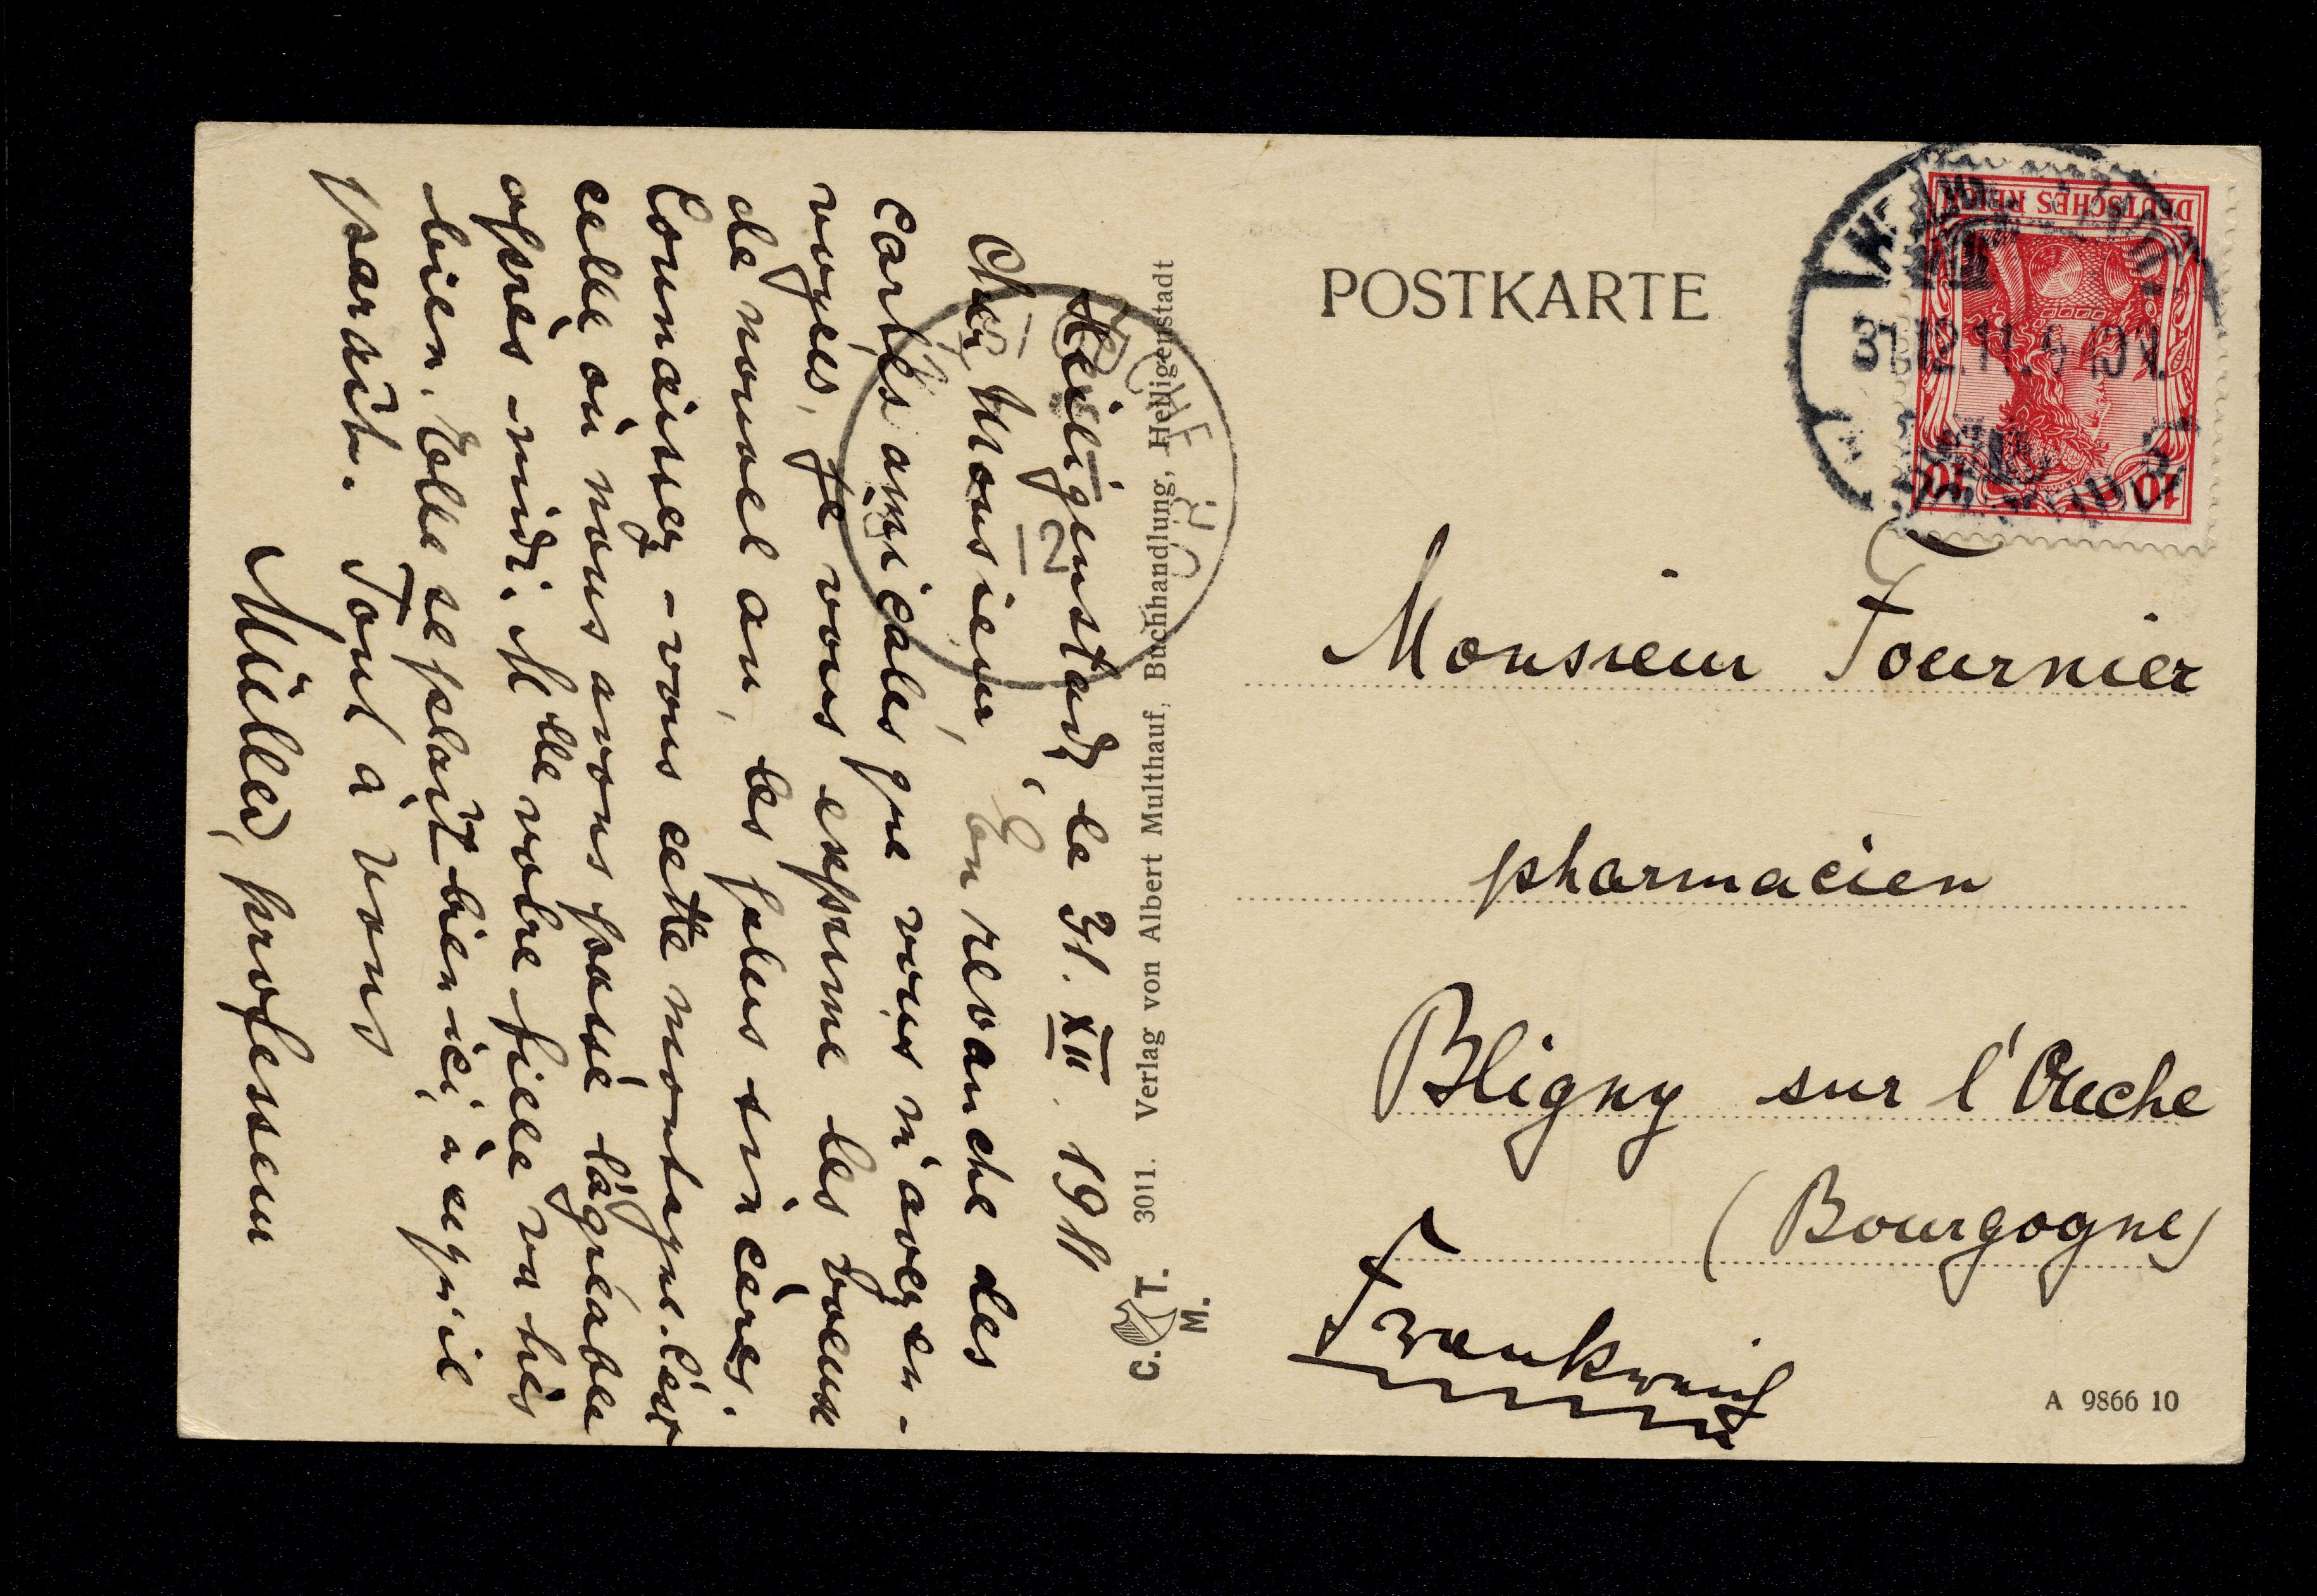 Heiligenstadt, le 31. XII. 1911
Cher Monsieur, En revanche des
cartes amicales que vous m'avez en-
voyées, je vous exprime les voeux
de nouvel an, les plus sincères.
Connaissez-vous cette montagne. C'est
celle où nous avons passé l'agréable
après-midi. Mlle votre fille va très
bien. Elle se plaît bien ici, à ce qu'il
paraît. Tout à vous
Müller, professeur
C. T.
M.
3011. Verlag von Albert Multhauf, Buchhandlung, Heiligenstadt
POSTKARTE
DEUTSCHES REICH
10 10
31.12.11.9-10V.
Monsieur Fournier
pharmacien
Bligny sur l'Ouche
(Bourgogne)
Frankreich
A 9866 10